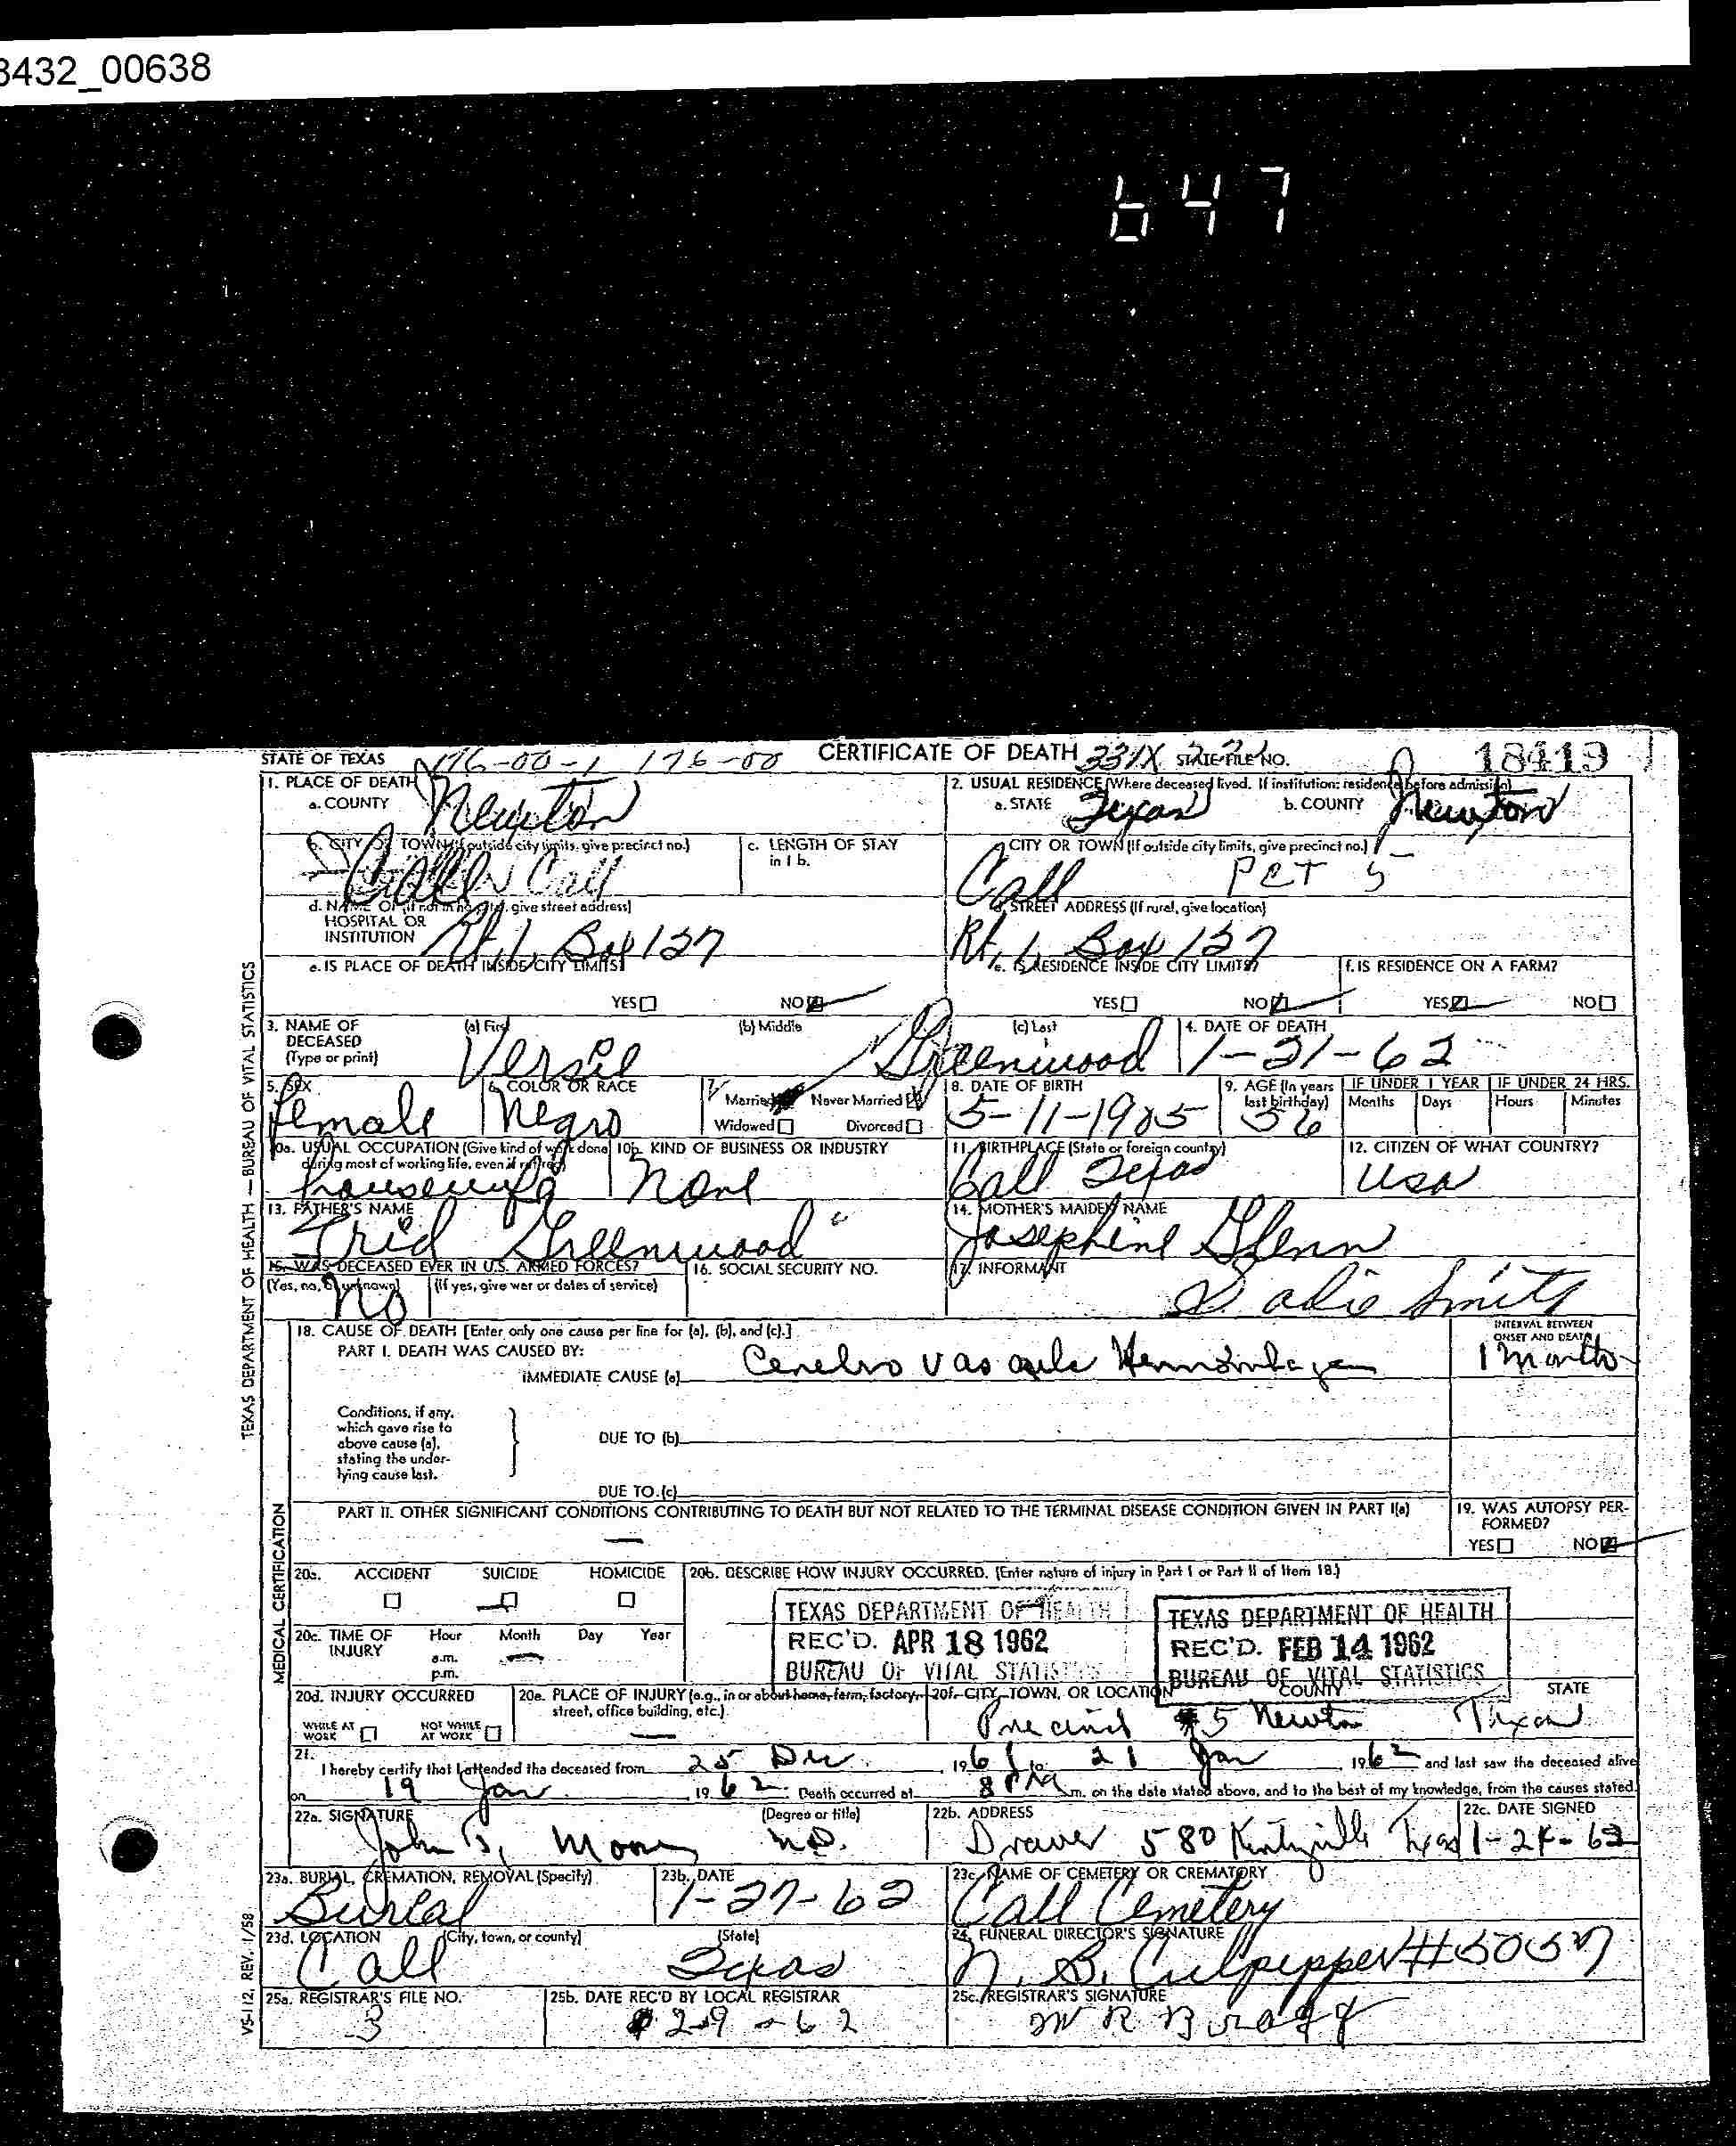 3432_00638
647
STATE OF TEXAS 176-00-1 176-00 CERTIFICATE OF DEATH 331X STATE FILE NO. 18419
1. PLACE OF DEATH
a. COUNTY Newton
2. USUAL RESIDENCE (Where deceased lived. If institution: residence before admission)
a. STATE Texas b. COUNTY Newton
b. CITY OR TOWN (If outside city limits, give precinct no.) Call
c. LENGTH OF STAY in 1 b.
CITY OR TOWN (If outside city limits, give precinct no.) Call PCT 5
d. NAME OF (If not in hospital, give street address)
HOSPITAL OR
INSTITUTION Rt. 1, Box 127
d. STREET ADDRESS (If rural, give location)
Rt. 1, Box 127
e. IS PLACE OF DEATH INSIDE CITY LIMITS?
YES NO
e. IS RESIDENCE INSIDE CITY LIMITS?
YES NO
f. IS RESIDENCE ON A FARM?
YES NO
3. NAME OF DECEASED (Type or print)
(a) First Versie (b) Middle (c) Last Greenwood
4. DATE OF DEATH 1-21-62
5. SEX Female
6. COLOR OR RACE Negro
7. Married Never Married
Widowed Divorced
8. DATE OF BIRTH 5-11-1905
9. AGE (In years last birthday) 56
IF UNDER 1 YEAR Months Days
IF UNDER 24 HRS. Hours Minutes
10a. USUAL OCCUPATION (Give kind of work done during most of working life, even if retired) housewife
10b. KIND OF BUSINESS OR INDUSTRY None
11. BIRTHPLACE (State or foreign country) Call Texas
12. CITIZEN OF WHAT COUNTRY? USA
13. FATHER'S NAME Fred Greenwood
14. MOTHER'S MAIDEN NAME Josephine Glenn
15. WAS DECEASED EVER IN U.S. ARMED FORCES?
(Yes, no, or unknown) No (If yes, give war or dates of service)
16. SOCIAL SECURITY NO.
17. INFORMANT Sadie Smith
18. CAUSE OF DEATH [Enter only one cause per line for (a), (b), and (c).]
PART I. DEATH WAS CAUSED BY:
IMMEDIATE CAUSE (a) Cerebro vascular Hemorrhage
INTERVAL BETWEEN ONSET AND DEATH
1 month
Conditions, if any, which gave rise to above cause (a), stating the underlying cause last.
DUE TO (b)
DUE TO (c)
PART II. OTHER SIGNIFICANT CONDITIONS CONTRIBUTING TO DEATH BUT NOT RELATED TO THE TERMINAL DISEASE CONDITION GIVEN IN PART I(a)
19. WAS AUTOPSY PERFORMED?
YES NO
20a. ACCIDENT SUICIDE HOMICIDE
20b. DESCRIBE HOW INJURY OCCURRED. (Enter nature of injury in Part I or Part II of Item 18.)
TEXAS DEPARTMENT OF HEALTH
REC'D. APR 18 1962
BUREAU OF VITAL STATISTICS
TEXAS DEPARTMENT OF HEALTH
REC'D. FEB 14 1962
BUREAU OF VITAL STATISTICS
20c. TIME OF INJURY Hour Month Day Year
a.m.
p.m.
20d. INJURY OCCURRED
WHILE AT WORK NOT WHILE AT WORK
20e. PLACE OF INJURY (e.g., in or about home, farm, factory, street, office building, etc.)
20f. CITY, TOWN, OR LOCATION COUNTY STATE
Precinct #5 Newton Texas
21. I hereby certify that I attended the deceased from 25 Dec 1961 to 21 Jan 1962 and last saw the deceased alive
on 19 Jan 1962. Death occurred at 8 PM m. on the date stated above, and to the best of my knowledge, from the causes stated.
22a. SIGNATURE (Degree or title)
John J. Moore M.D.
22b. ADDRESS
Drawer 580 Kirbyville Texas
22c. DATE SIGNED
1-24-62
23a. BURIAL, CREMATION, REMOVAL (Specify)
Burial
23b. DATE
1-27-62
23c. NAME OF CEMETERY OR CREMATORY
Call Cemetery
23d. LOCATION (City, town, or county) (State)
Call Texas
24. FUNERAL DIRECTOR'S SIGNATURE
N. B. Culpepper #5057
25a. REGISTRAR'S FILE NO.
3
25b. DATE REC'D BY LOCAL REGISTRAR
2-9-62
25c. REGISTRAR'S SIGNATURE
W R Bragg
TEXAS DEPARTMENT OF HEALTH — BUREAU OF VITAL STATISTICS
MEDICAL CERTIFICATION
VS-112, REV. 1/58